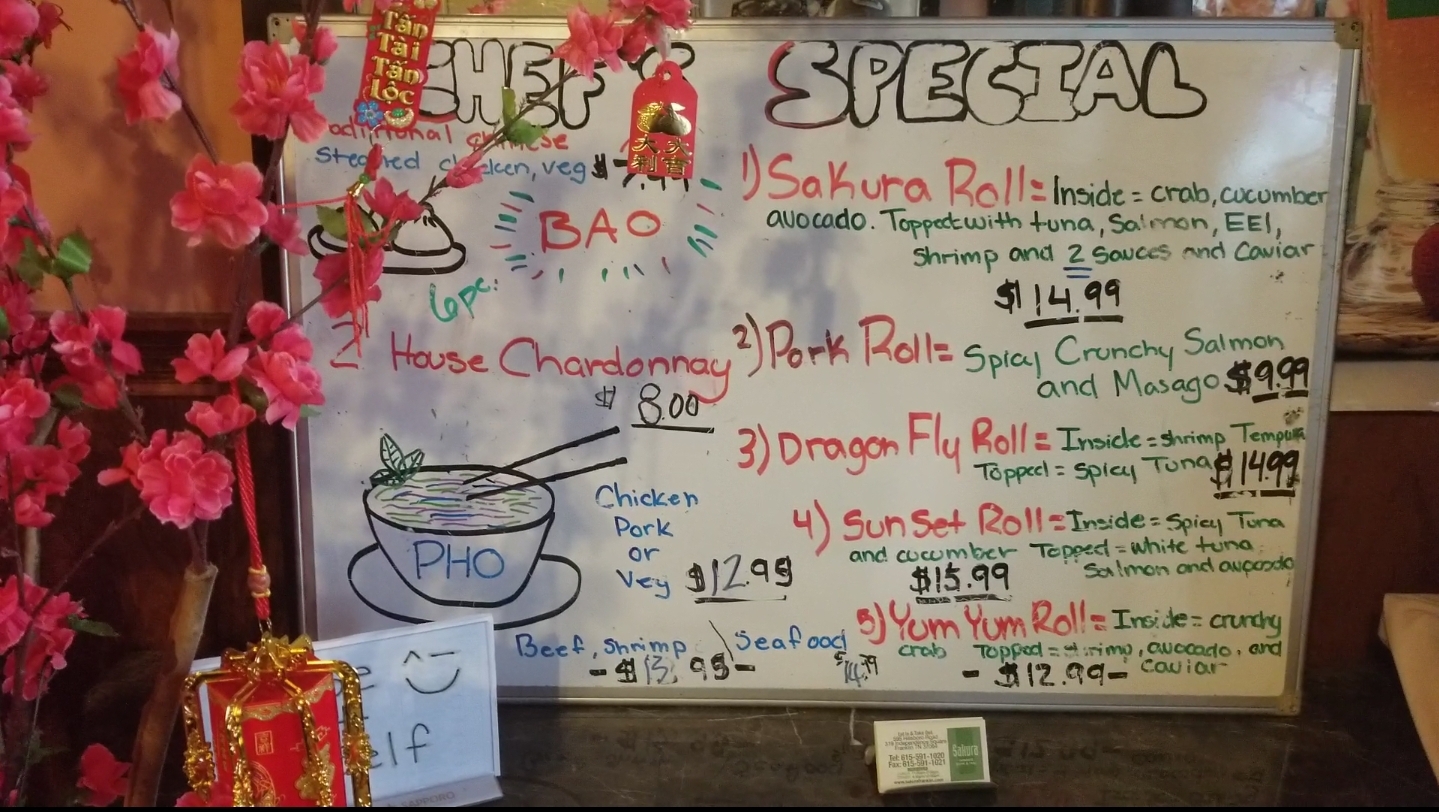 CHEF'S SPECIAL
Tấn
Tài
Tấn
Lộc
大 大
利 吉
aditional chinese
Steamed chicken, veg $
BAO
6pc.
2 House Chardonnay
$ 8.00
PHO
Chicken
Pork
or
Vey $12.95
Beef, Shrimp \ Seafood
-$13.95- $14.99
1) Sakura Roll= Inside = crab, cucumber
avocado. Topped with tuna, Salmon, EEl,
shrimp and 2 Sauces and Caviar
$14.99
2) Pork Roll= Spicy Crunchy Salmon
and Masago $9.99
3) Dragon Fly Roll= Inside = shrimp Tempura
Topped = Spicy Tuna $14.99
4) Sun Set Roll= Inside = Spicy Tuna
and cucumber Topped = white tuna
Salmon and avocado
$15.99
5) Yum Yum Roll= Inside = crunchy
crab Topped = shrimp, avocado, and
caviar
-$12.99-
elf
SAPPORO
Tel: 615-591-1020
Fax: 615-591-1021
Sakura